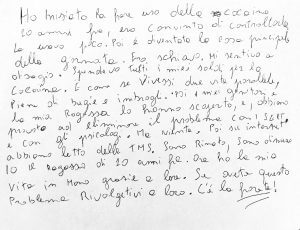 Ho iniziato a fare uso della cocaina
10 anni fa, ero convinto di controllarla
La usavo poco. Poi è diventata la cosa principale
della giornata. Ero schiavo. Mi sentivo a
disagio. Spendevo tutti i miei soldi per la
Cocaina. È come se vivessi due vite parallele,
Piene di bugie e imbrogli. Poi i miei genitori e
la mia Ragazza lo hanno scoperto, e abbiamo
provato ad eliminare il problema con i SERT
e con gli psicologi. Ma niente. Poi su internet
abbiamo letto della TMS. Sono Rinato, Sono ritornato
10 il Ragazzo di 10 anni fa. Ora ho la mia
Vita in Mano grazie a loro. Se avete questo
Problema Rivolgetevi a loro. C'è la farete!